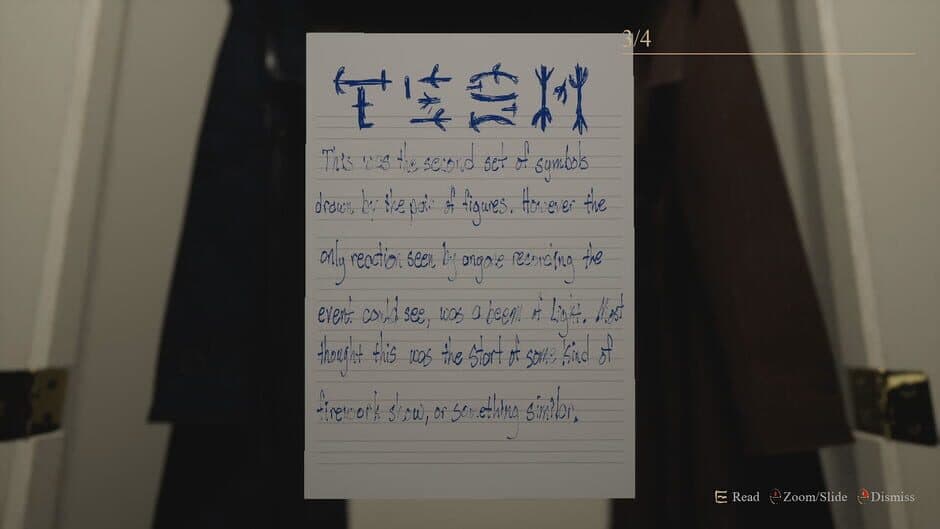 3/4
This was the second set of symbols
drawn by the pair of figures. However the
only reaction seen by anyone recording the
event could see, was a beem of Light. Most
thought this was the start of some kind of
firework show, or something similar.
E Read Zoom/Slide Dismiss